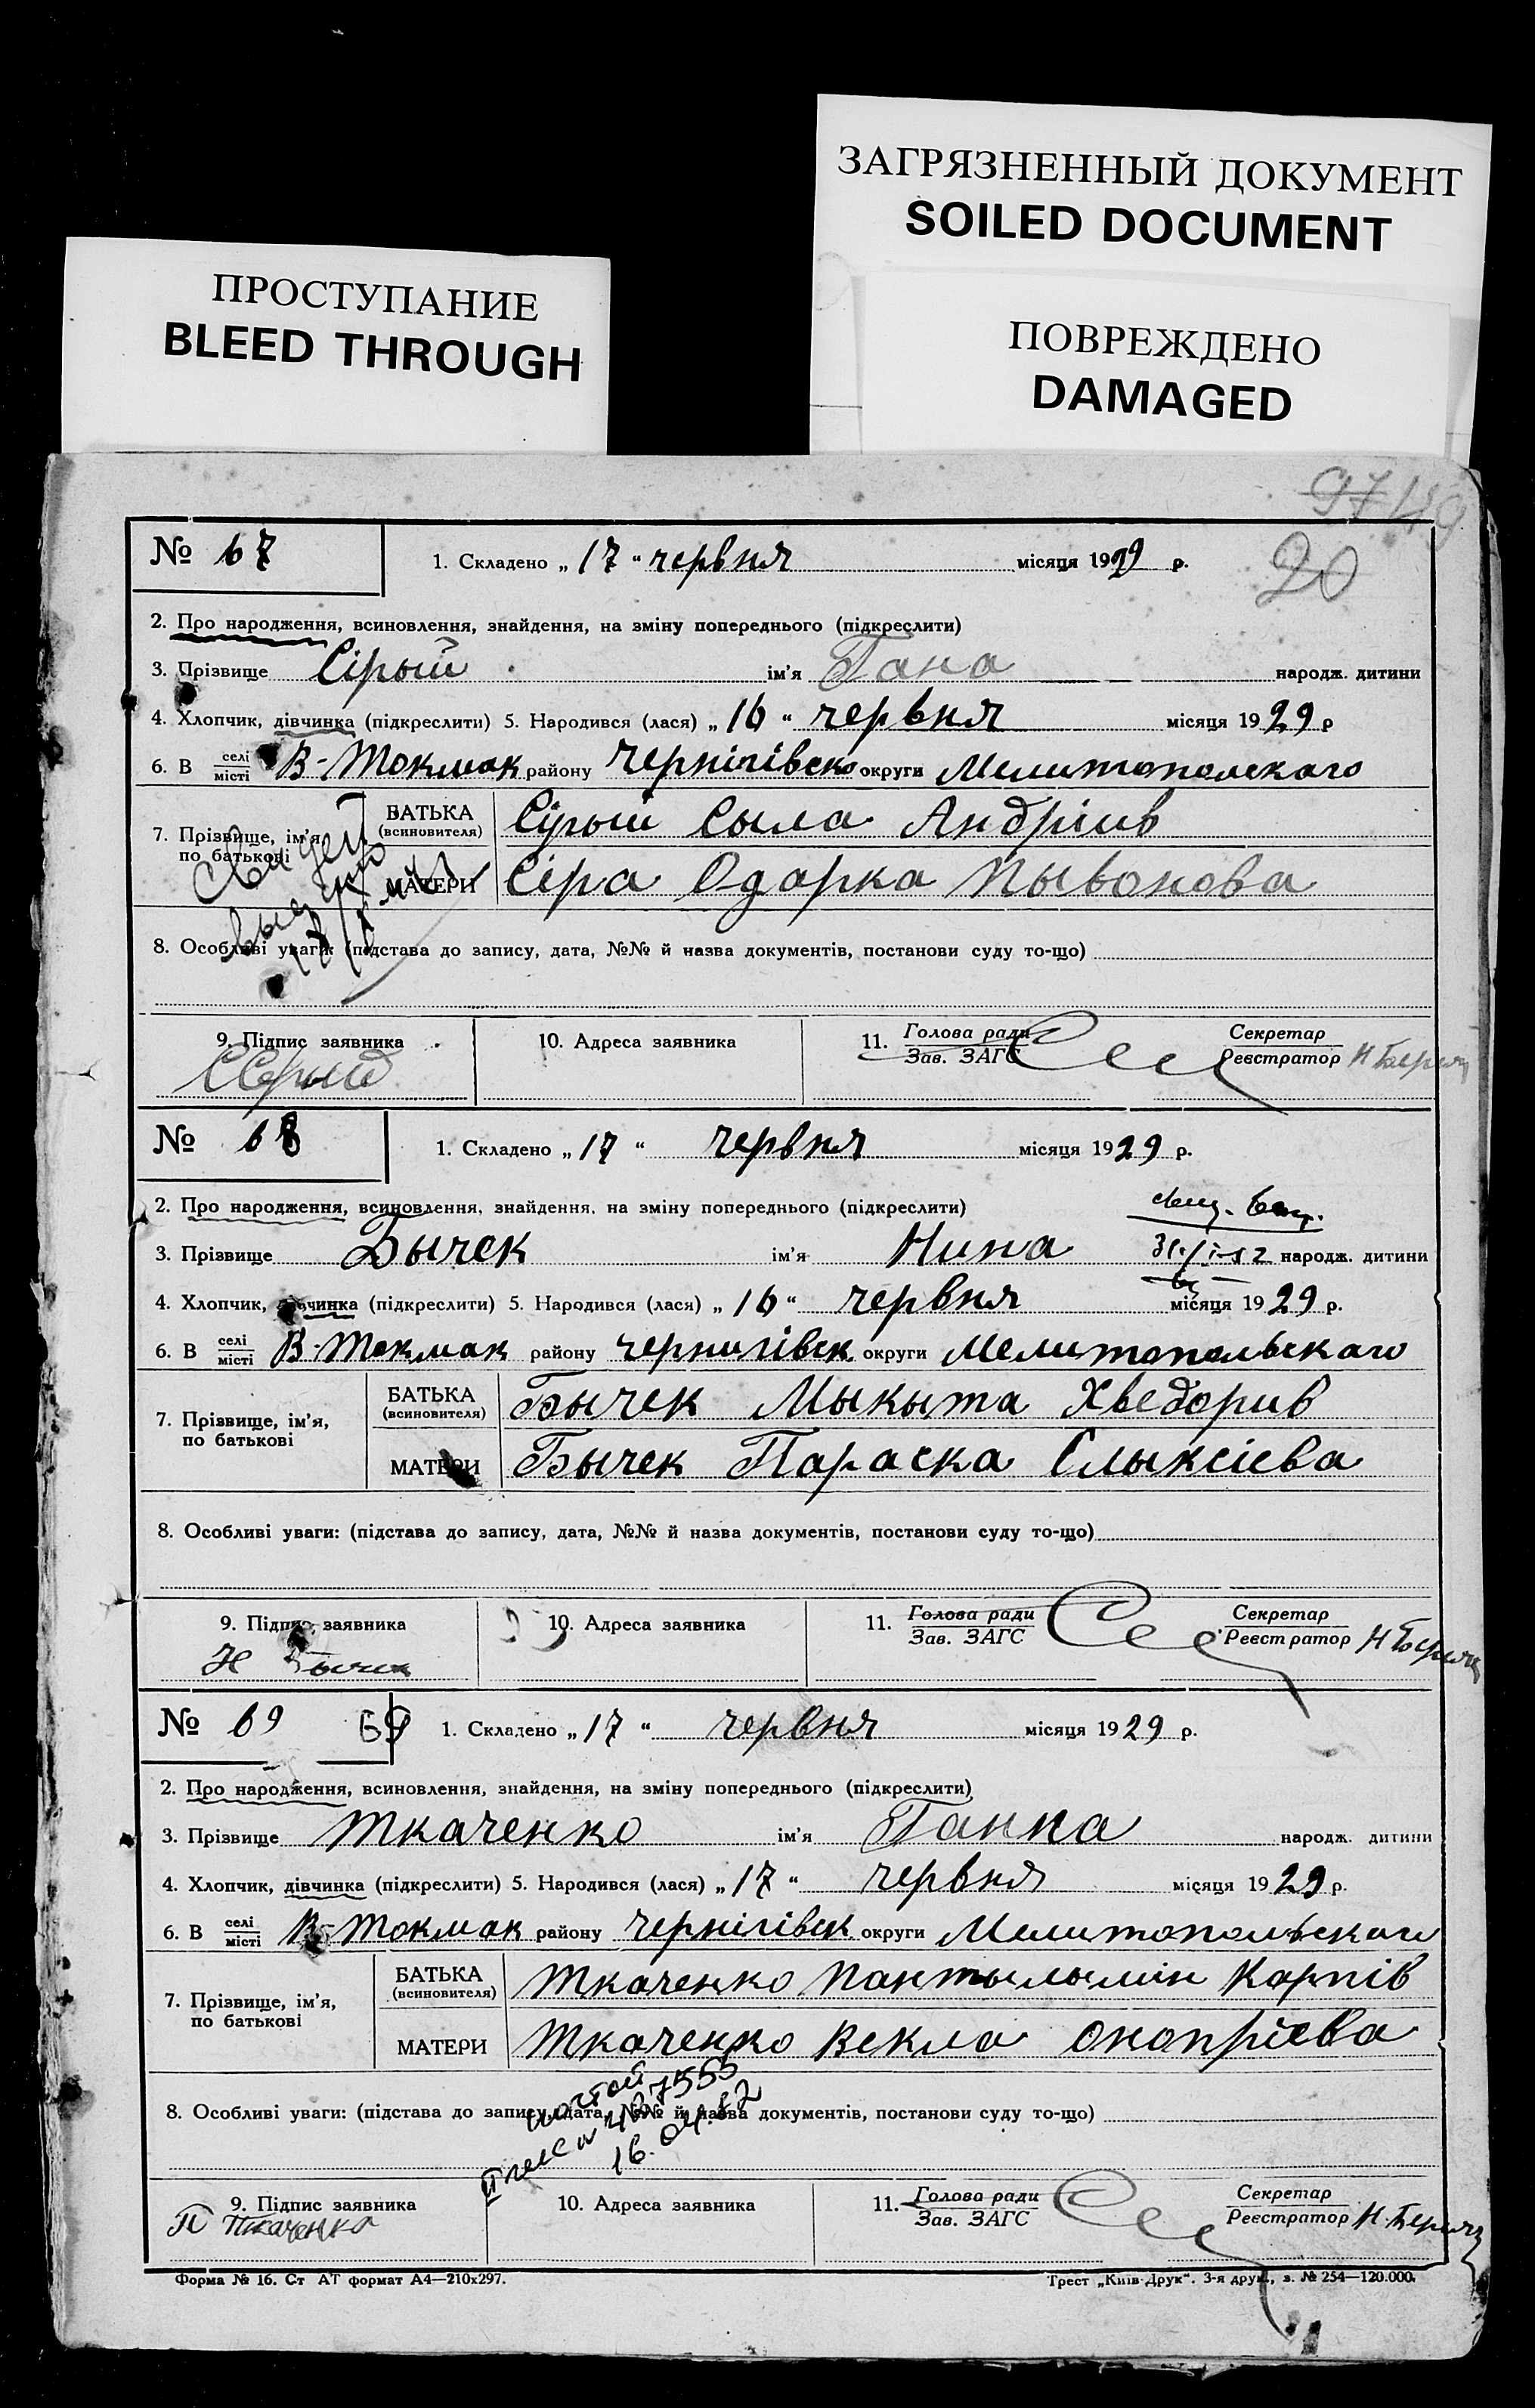 ЗАГРЯЗНЕННЫЙ ДОКУМЕНТ
SOILED DOCUMENT
ПРОСТУПАНИЕ
BLEED THROUGH
ПОВРЕЖДЕНО
DAMAGED
20
№ 67 1. Складено „17“ червня місяця 1929 р.
2. Про народження, всиновлення, знайдення, на зміну попереднього (підкреслити)
3. Прізвище Сірый ім'я Гана народж. дитини
4. Хлопчик, дівчинка (підкреслити) 5. Народився (лася) „16“ червня місяця 1929 р
6. В селі/місті В-Токмак району Чернігівско округи Мелитополскаго
7. Прізвище, ім'я, по батькові БАТЬКА (всиновителя) Сірый Сыла Андріив
МАТЕРИ Сіра Одарка Пывонова
8. Особливі уваги: (підстава до запису, дата, №№ й назва документів, постанови суду то-що)
9. Підпис заявника 10. Адреса заявника 11. Голова ради/Зав. ЗАГС Секретар/Реєстратор
ССерый
№ 68 1. Складено „17“ червня місяця 1929 р.
2. Про народження, всиновлення, знайдення, на зміну попереднього (підкреслити)
3. Прізвище Бычек ім'я Нина народж. дитини
4. Хлопчик, дівчинка (підкреслити) 5. Народився (лася) „16“ червня місяця 1929 р.
6. В селі/місті В-Токмак району Чернигівск округи Мелитопольскаго
7. Прізвище, ім'я, по батькові БАТЬКА (всиновителя) Бычек Мыкыта Хведорив
МАТЕРИ Бычек Параска Олыксієва
8. Особливі уваги: (підстава до запису, дата, №№ й назва документів, постанови суду то-що)
9. Підпис заявника 10. Адреса заявника 11. Голова ради/Зав. ЗАГС Секретар/Реєстратор
№ 69 69 1. Складено „17“ червня місяця 1929 р.
2. Про народження, всиновлення, знайдення, на зміну попереднього (підкреслити)
3. Прізвище Ткаченко ім'я Ганна народж. дитини
4. Хлопчик, дівчинка (підкреслити) 5. Народився (лася) „17“ червня місяця 1929 р.
6. В селі/місті В-Токмак району Чернігівск округи Мелитопольскаго
7. Прізвище, ім'я, по батькові БАТЬКА (всиновителя) Ткаченко Пантылымін Карпів
МАТЕРИ Ткаченко Векла Онопрієва
8. Особливі уваги: (підстава до запису, дата, №№ й назва документів, постанови суду то-що)
16.04.82
9. Підпис заявника 10. Адреса заявника 11. Голова ради/Зав. ЗАГС Секретар/Реєстратор
П Ткаченко
Форма № 16. Ст АТ формат А4—210х297. Трест „Київ-Друк“. 3-я друк., з. № 254—120.000.